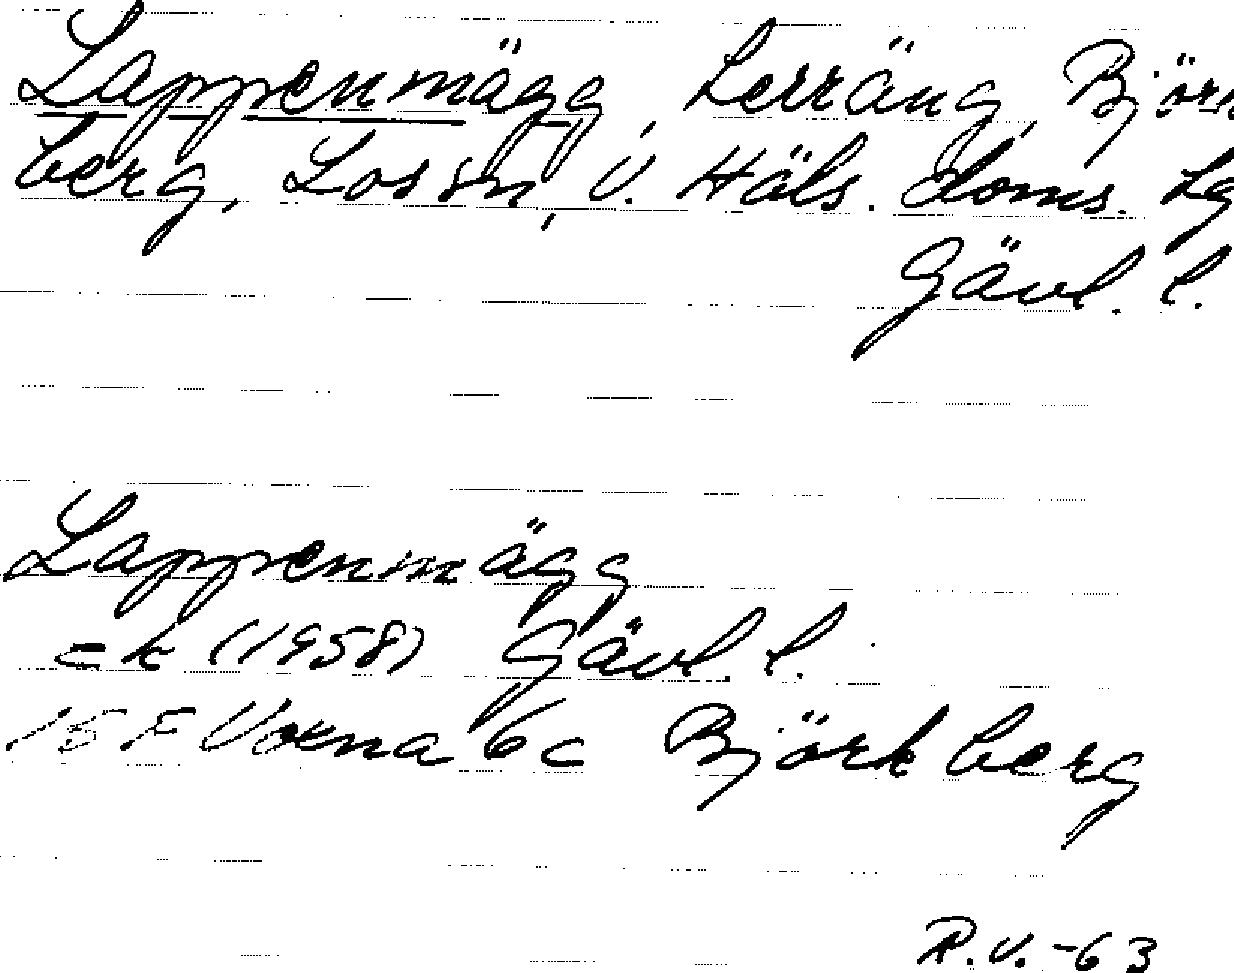 Lappenmägg, Lerräng, Björk
berg, Los sn, V. Häls. doms. Lg
Gävl. l.
Lappenmägg
= k (1958) Gävl. l.
15 F Voxna 6c Björkberg
R.V. -63